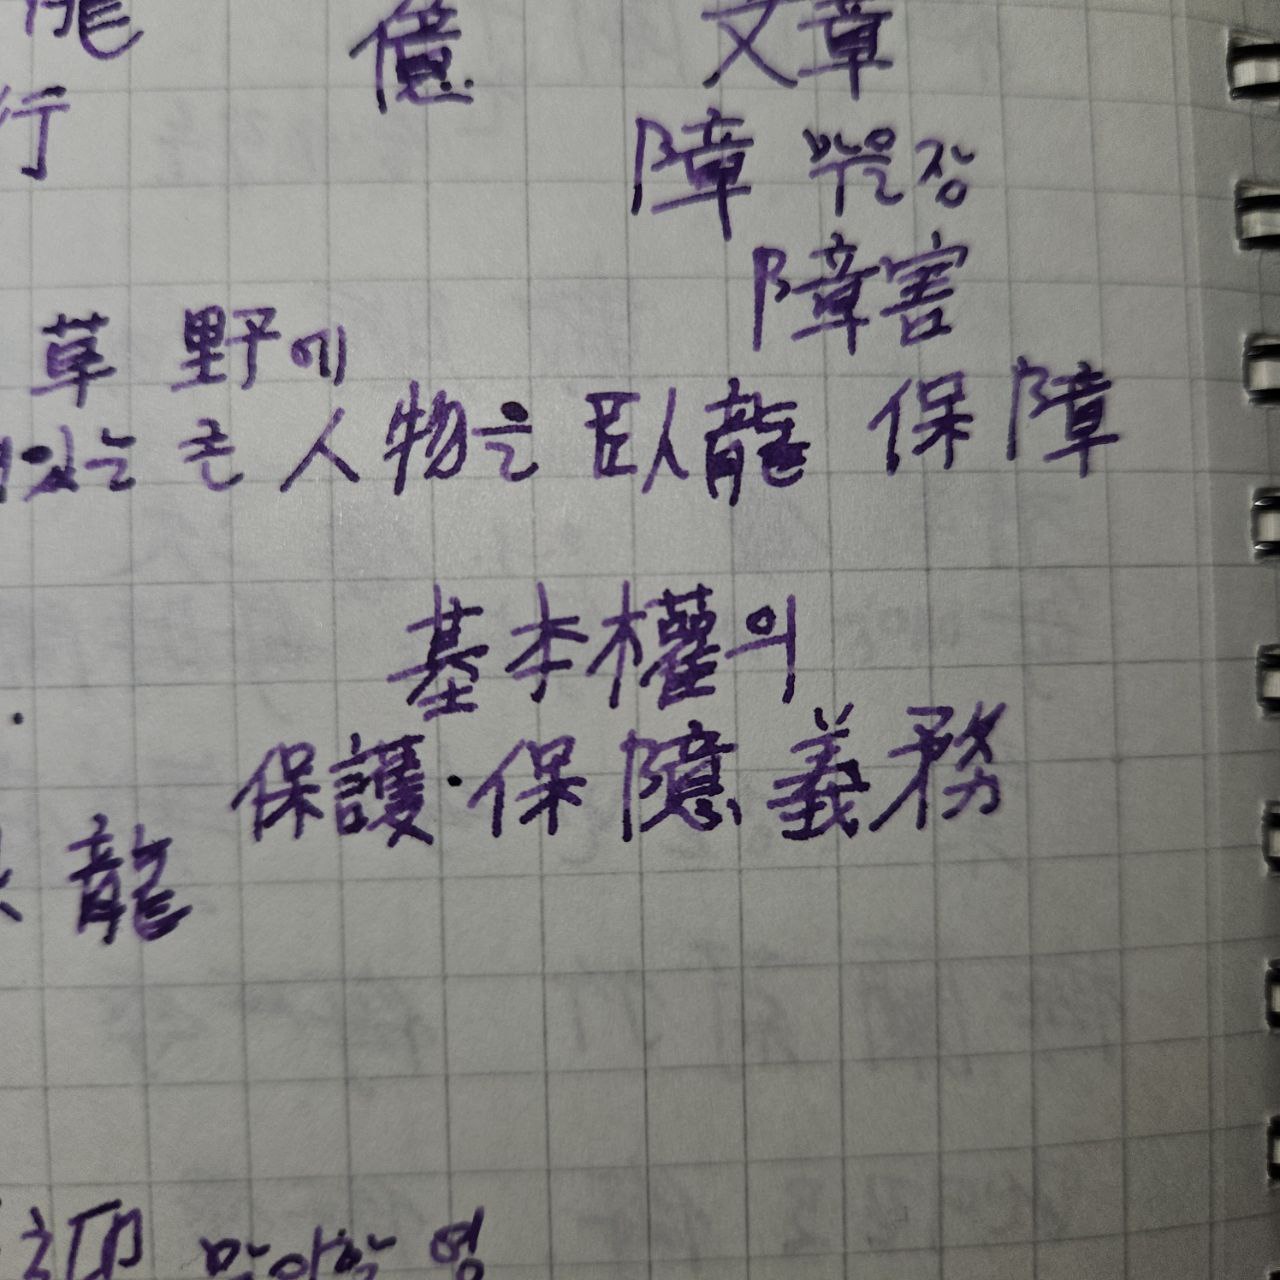 億 文章
行 障 막을 장
障害
草野에
있는 큰 人物은 臥龍 保障
基本權의
保護·保障 義務
龍
迎 맞이할 영